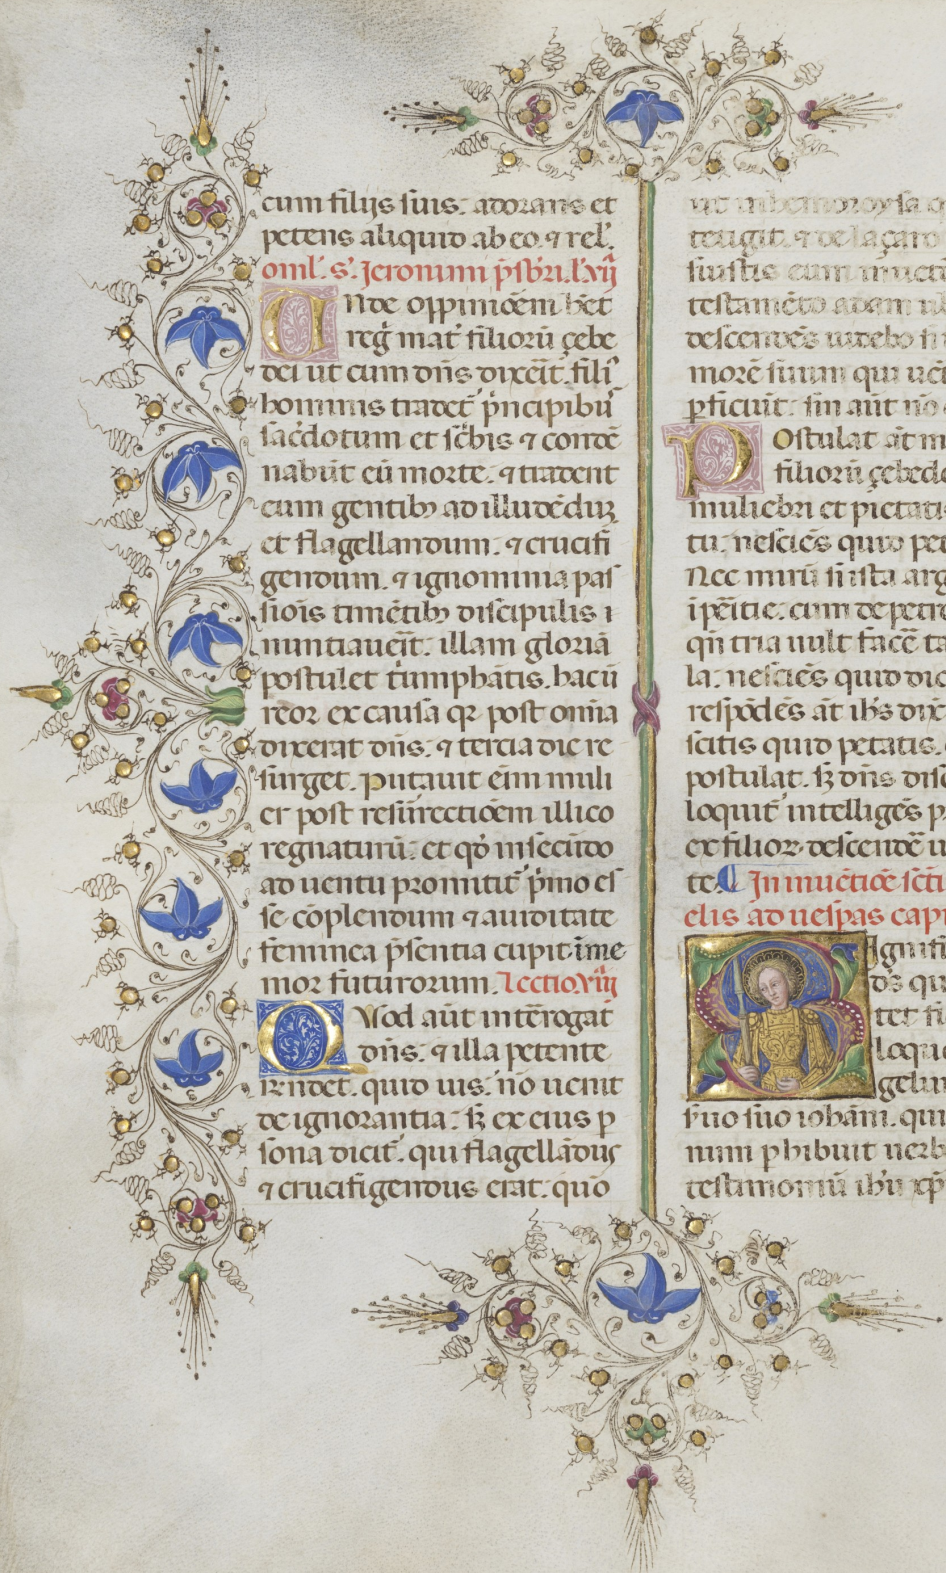 cum filijs suis: adorans et
petens aliquid ab eo. ⁊ rel̄.
oml̄. s. Jeronimi p̄sbr̄i. l. xij
Unde oppinioēm h̄et
reg̅ mat̄ filiorū çebe
dei ut cum dn̄s dixēit. fili᾽
hominis tradet᾽ p̄ncipibu᾽
sac̄dotum et sc̄bis ⁊ condē
nabūt eū morte. ⁊ tradent
eum gentibꝰ ad illudēduꝫ
et flagellandum. ⁊ crucifi
gendum. ⁊ ignominia pas
siōis timētibꝰ discipulis
nuntiauēit. illam gloriā
postulet t̄umphātis. hac ū
reor ex causa qꝛ post omīa
dixerat dn̄s. ⁊ tercia die re
surget. Putauit eīm muli
er post resurrectiōem illico
regnaturū. et qd̄ in secūdo
ad uentu promitit᾽ p̄mo es
se cōplendum ⁊ auiditate
feminea p̄sentia cupit īme
mor futurorum. Lectio. viij
Quod aūt int̄rogat
dn̄s. ⁊ illa petente
r̄ndet. quid uis. nō uenit
de ignorantia: sꝫ ex eius ꝑ
sona dicit᾽. qui flagellādus
⁊ crucifigendus erat. quō
tetigit. ⁊ de laçaro
testamēto
descendēs
morē suum qui
ꝑficiūt. sin aūt nō
Postulat āt
filiorū çebede
muliebri et pietati
tu. nesciēs quid pet
Nec mirū si ista arg
īpēitie. cum de petr
qn̄ tria uult facē ta
la. nesciēs quid dic
respōdēs āt ih̄s dix
scitis quid petatis.
postulat. sꝫ dn̄s dis
loquit᾽ intelligēs
ex filioꝝ descendē
te. In inuētiōe sc̄ti
elis ad uesꝑas capi
Signifi
d̄s qu
tet fu
loque
gelum
s̄uo suo ioh̄am. qui
nium ꝑhibuit uerb
testimoniū ih̄u xp̄